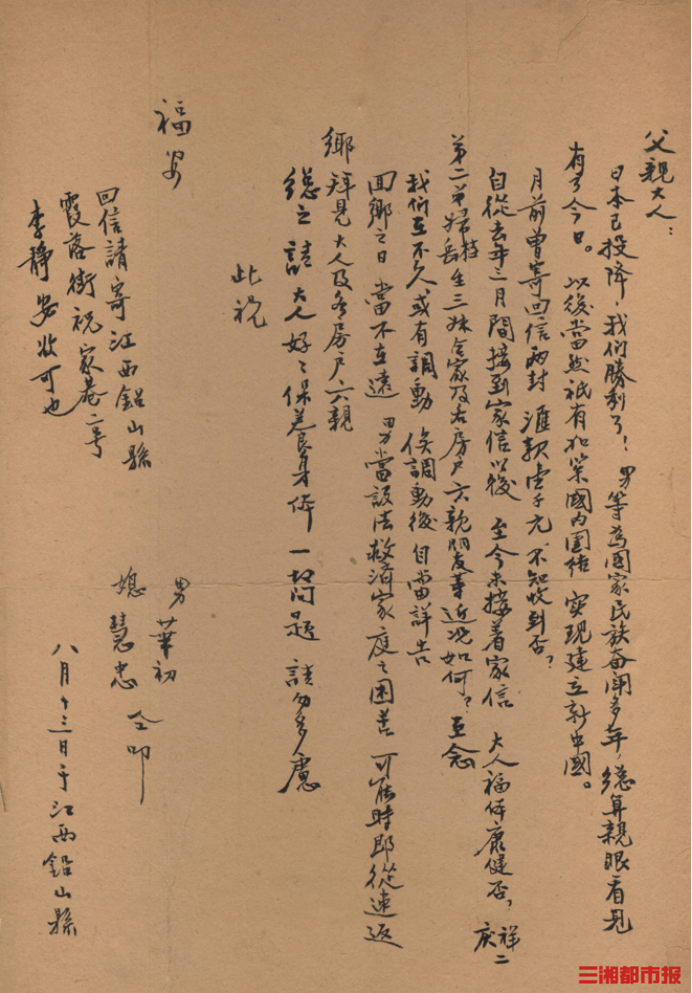 父親大人：
日本已投降，我們勝利了！男等為國家民族奮鬥多年，總算親眼看見
有了今日。以後當然祇有加緊國內團結 實現建立新中國。
月前曾寄回信兩封 滙款壹千元 不知收到否？
自從去年三月間接到家信以後 至今未接着家信 大人福体康健否？祥二
第二弟婦 岳生三妹全家及各房戶六親朋友等近況如何？至念
我們在不久或有調動 俟調動後自當詳告
回鄉之日 當不在遠 男當設法救濟家庭之困苦 可能時即從速返
鄉拜見大人及各房戶六親
總之請大人好好保養身体 一切問題 請勿多慮
此祝
福安
男 華初
媳 慧忠 仝叩
八月十三日于江西鉛山縣
回信請寄江西鉛山縣
霞落街祝家巷二号
李靜安收可也
三湘都市报